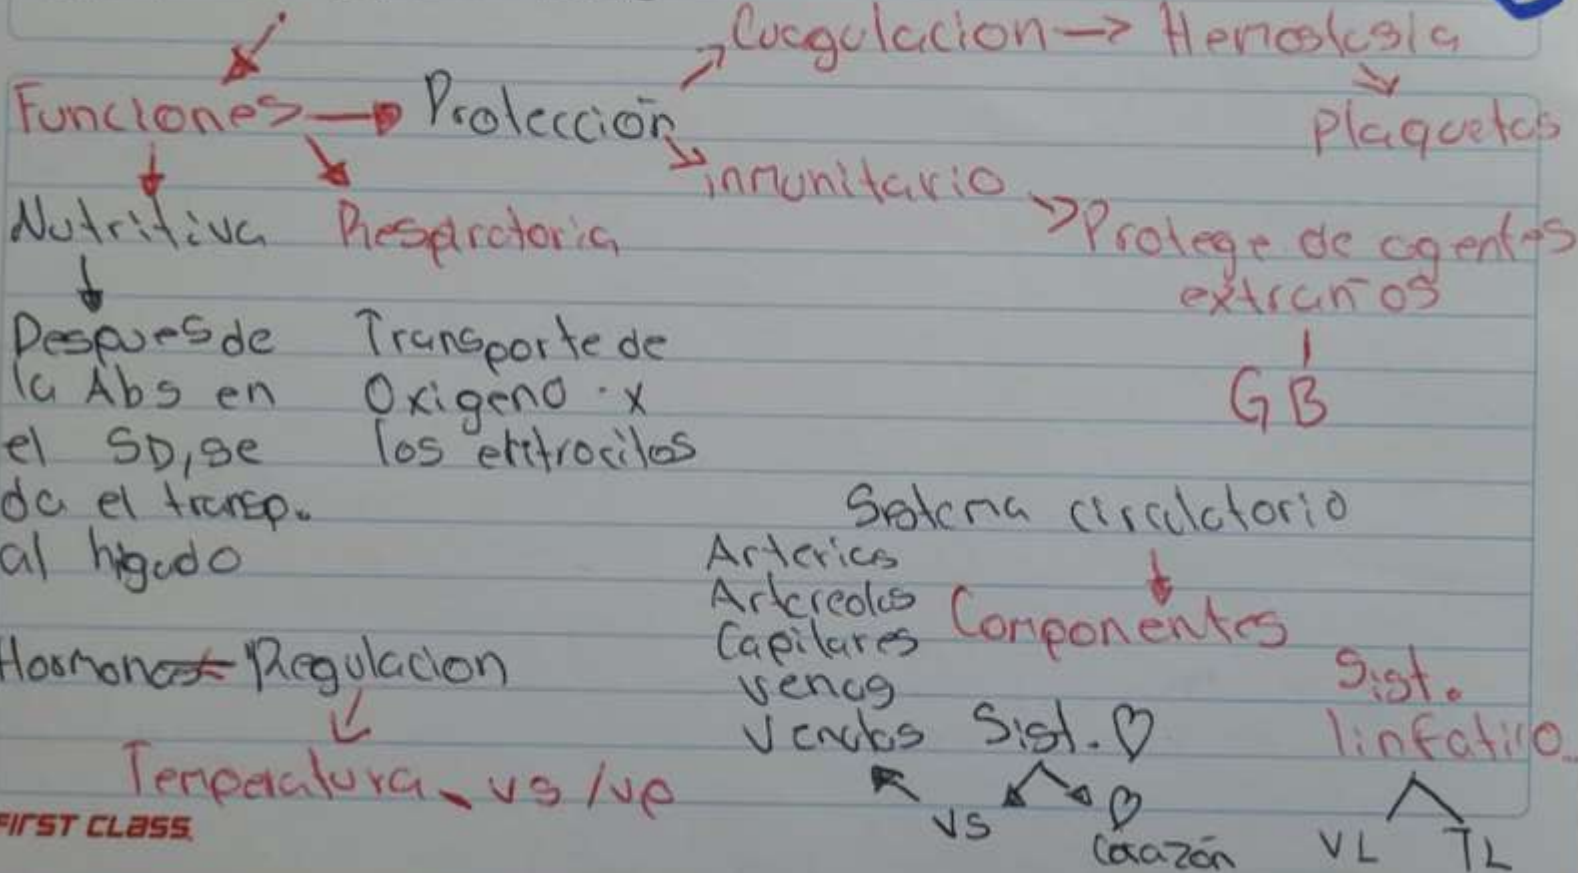 Coagulacion → Hemostasia
Funciones → Protección
Plaquetas
inmunitario
Nutritiva Respiratoria
Protege de agentes
extraños
Despues de
la Abs en
el SD, se
da el transp.
al higado
Transporte de
Oxigeno x
los eritrocitos
GB
Sistema circulatorio
Arterias
Artereolas
Capilares
venas
Venulas
Componentes
Hormonas Regulacion
Temperatura vs / vp
Sist. ♡
Sist.
linfatico
VS
♡
Corazón
VL TL
FIRST CLASS